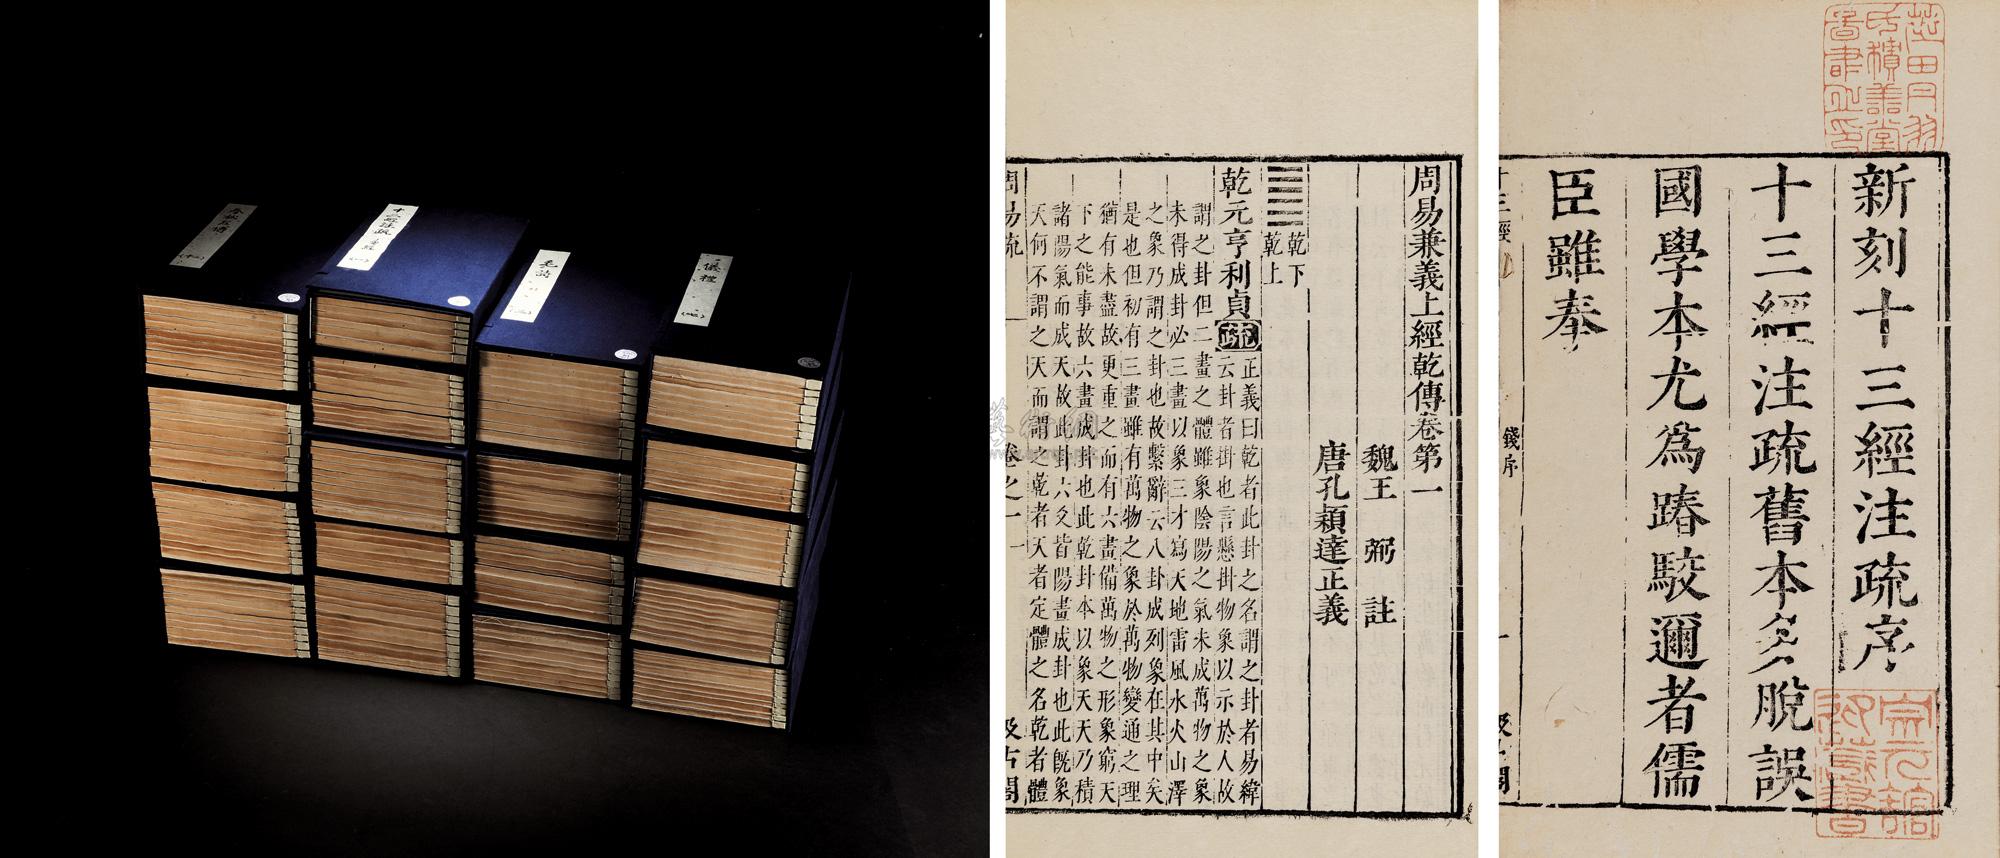 十三經注疏
毛詩
儀禮
周易兼義上經乾傳卷第一
魏王弼註
唐孔穎達正義
乾下
乾上
乾元亨利貞疏
正義曰乾者此卦之名謂之卦者易緯
云卦者掛也言懸掛物象以示於人故
謂之卦但二畫之體雖象陰陽之氣未成萬物之象
未得成卦必三畫以象三才寫天地雷風水火山澤
之象乃謂之卦也故繫辭云八卦成列象在其中矣
是也但初有三畫雖有萬物之象於萬物變通之理
猶有未盡故更重之而有六畫備萬物之形象窮天
下之能事故六畫成卦也此乾卦本以象天天乃積
諸陽氣而成天故此卦六爻皆陽畫成卦也此既象
天何不謂之天而謂之乾者天者定體之名乾者體
周易疏
卷之一
一
汲古閣
新刻十三經注疏序
十三經注疏舊本多脫誤
國學本尤為踳駮邇者儒
臣雖奉
十三經
錢序
一
汲古閣